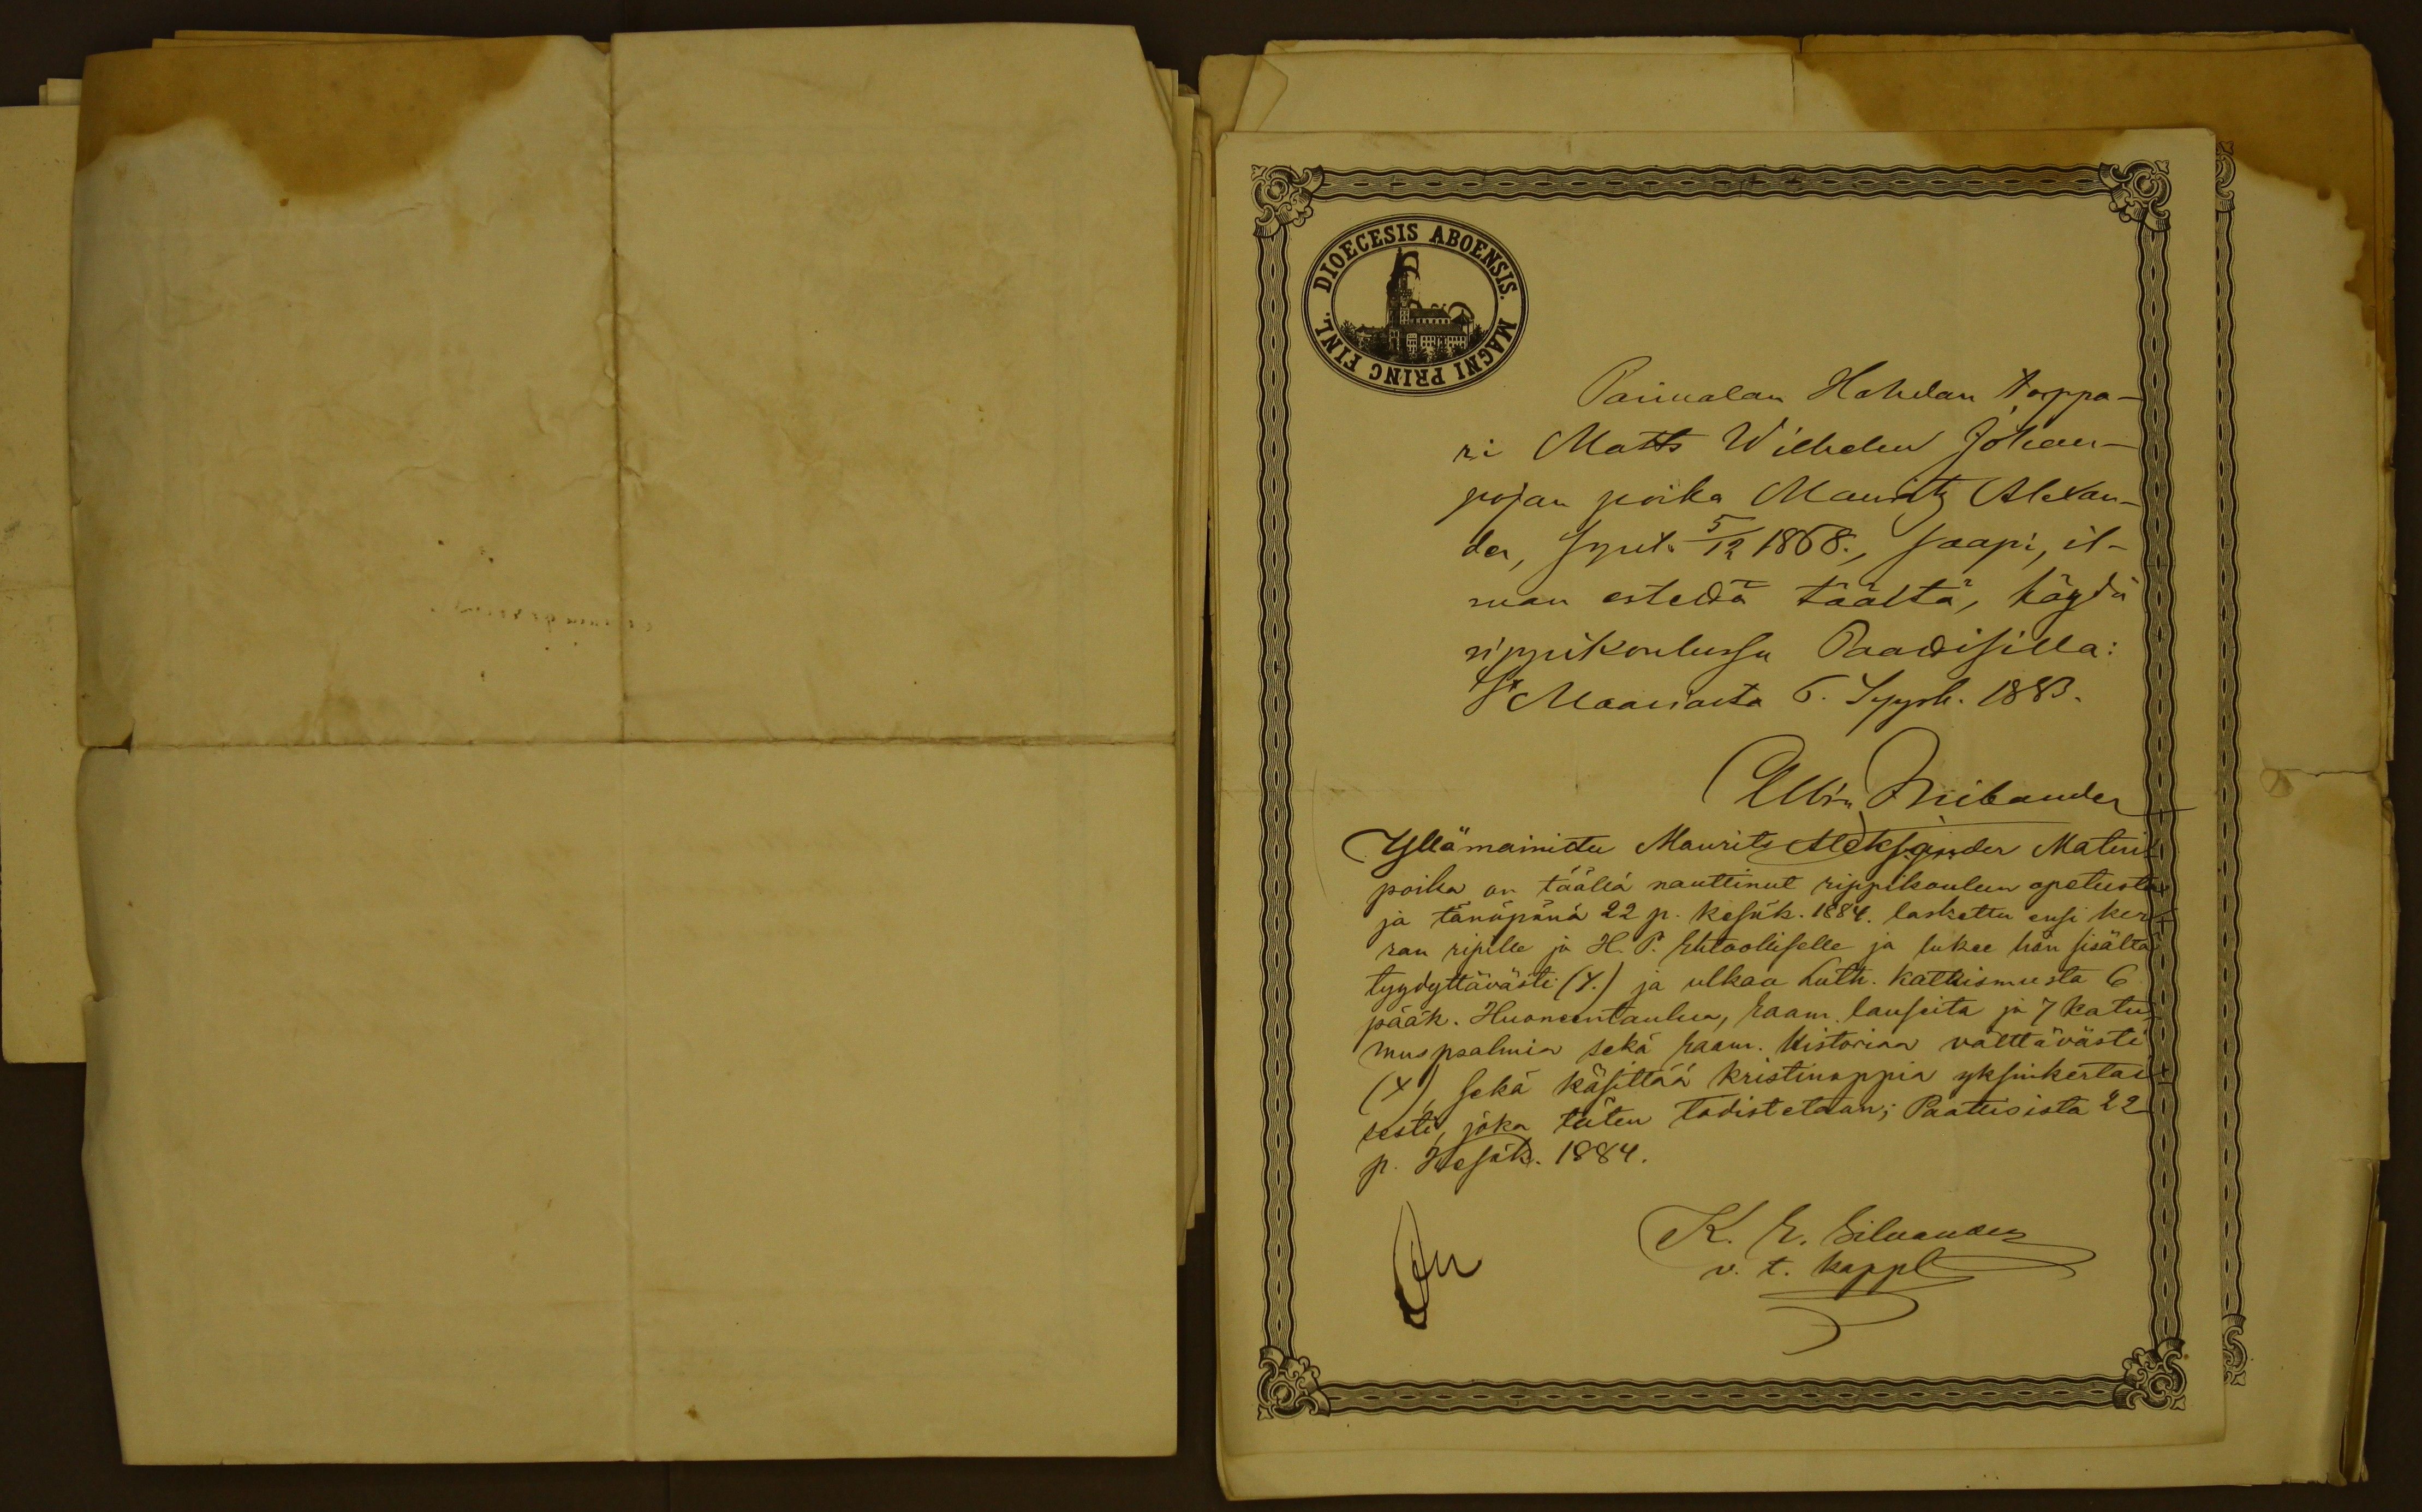 DIOECESIS ABOENSIS. MAGNI PRINC FINL.
Hahdan torppa-
ri Matts Wilhelm Johan-
pojan poika Mauritz Alexan-
der, synt. 5/12 1868., saapi, il-
man estettä täältä, käydä
rippikoulussa
St Maariasta 6. Syysk. 1883.
Yllämainittu Maurits Aleksander Matin-
poika on täällä nauttinut rippikoulun opetusta
ja tänäpänä 22 p. kesäk. 1884. laskettu ensi ker-
ran ripille ja H. P. Ehtoolliselle ja lukee hän sisältä
tyydyttävästi (Y.) ja ulkaa Luth. katkismusta 6
pääk. Huoneentaulua, Raam. lauseita ja 7 katu-
muspsalmia sekä Raam. historiaa välttävästi
sekä käsittää kristinoppia yksinkertai-
sesti, joka täten todistetaan; Paatisista 22
p. Kesäk. 1884.
K. E. Silvander
v. t. kappl